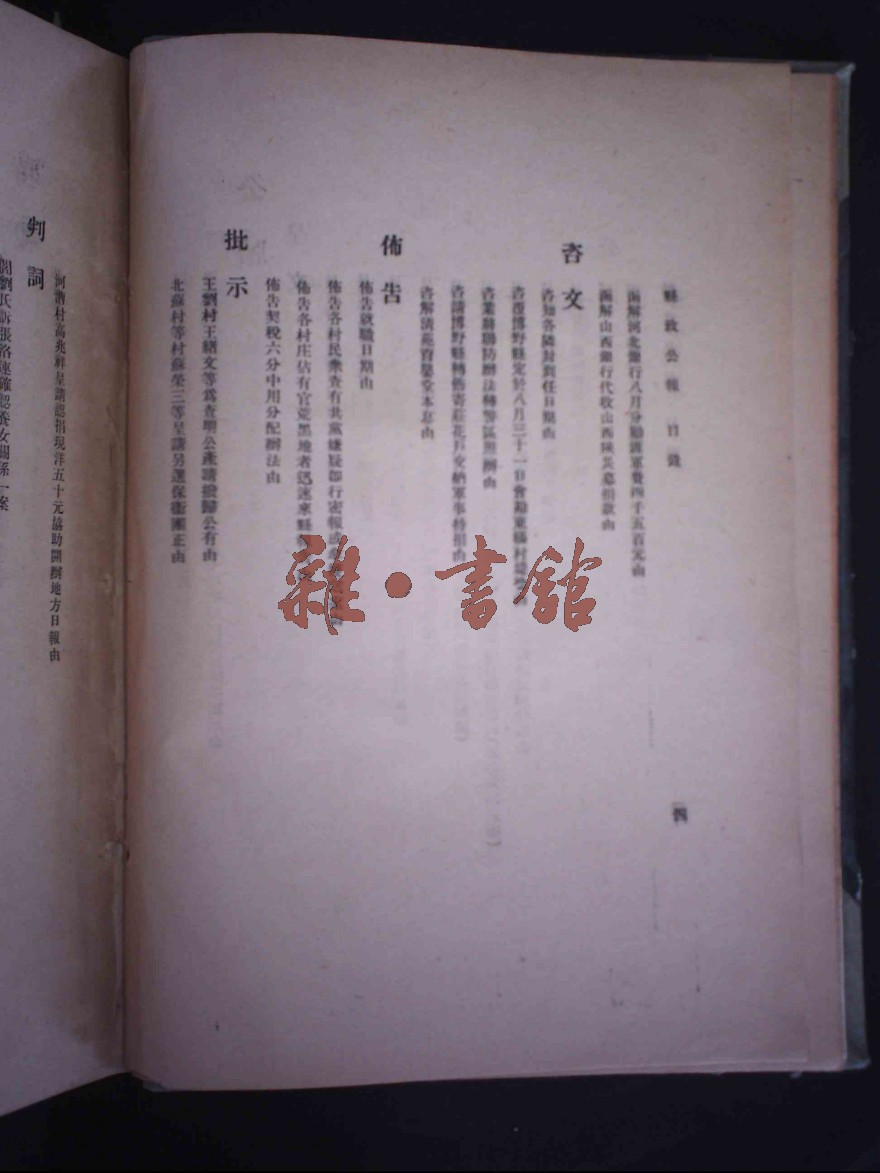 縣政公報 目錄
四
函解河北銀行八月分軍費四千五百元由
函解山西銀行代收山西陝災急捐款由
咨文
咨知各隣封到任日期由
咨復博野縣定於八月三十一日會勘東
咨縣聯防辦法轉等區照辦由
咨請博野縣轉飭寄莊花戶交納軍事特捐由
咨解清苑育嬰堂本息由
佈告
佈告就職日期由
佈告各村民衆查有共黨嫌疑卽行密報
佈告各村庄佔有官荒黑地者迅速來縣
佈告契稅六分中用分配辦法由
批示
王劉村王緒文等為查壩公產請撥歸公有由
北蘇村等村蘇榮三等呈請另選保衛團正由
河渚村高兆祥呈請認捐現洋五十元協助開辦地方日報由
判詞
閻劉氏訴張洛連確認養女關係一案
雜·書館